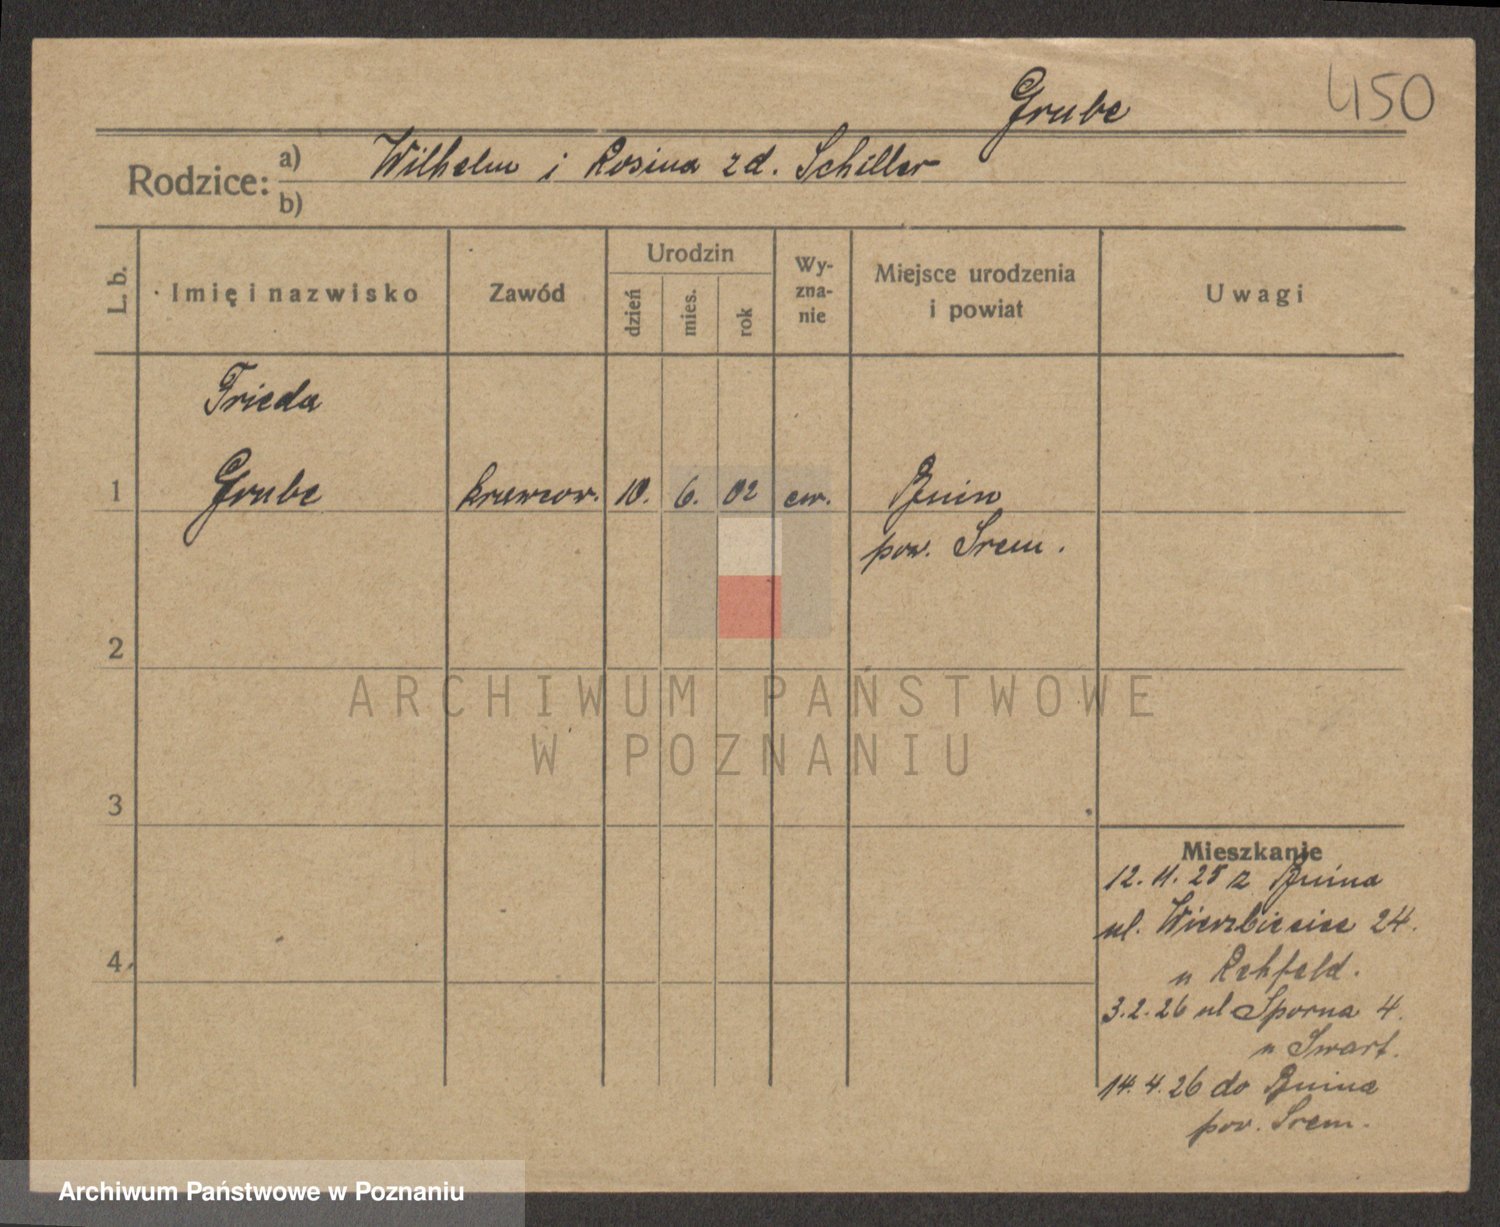 Grube
450
Rodzice: a) Wilhelm i Rosina zd. Schiller
b)
L. b.
Imię i nazwisko
Zawód
Urodzin
dzień
mies.
rok
Wy-
zna-
nie
Miejsce urodzenia
i powiat
Uwagi
Frieda
1 Grube krawcow. 10. 6. 02 ew. Bnin
pow. Srem.
2
3
4
ARCHIWUM PAŃSTWOWE
W POZNANIU
Mieszkanie
12. 11. 25 z Bnina
ul. Wierzbięcice 24.
u Rehfeld.
3. 2. 26 ul Sporna 4.
u Swart.
14. 4. 26 do Bnina
pow. Srem.
Archiwum Państwowe w Poznaniu